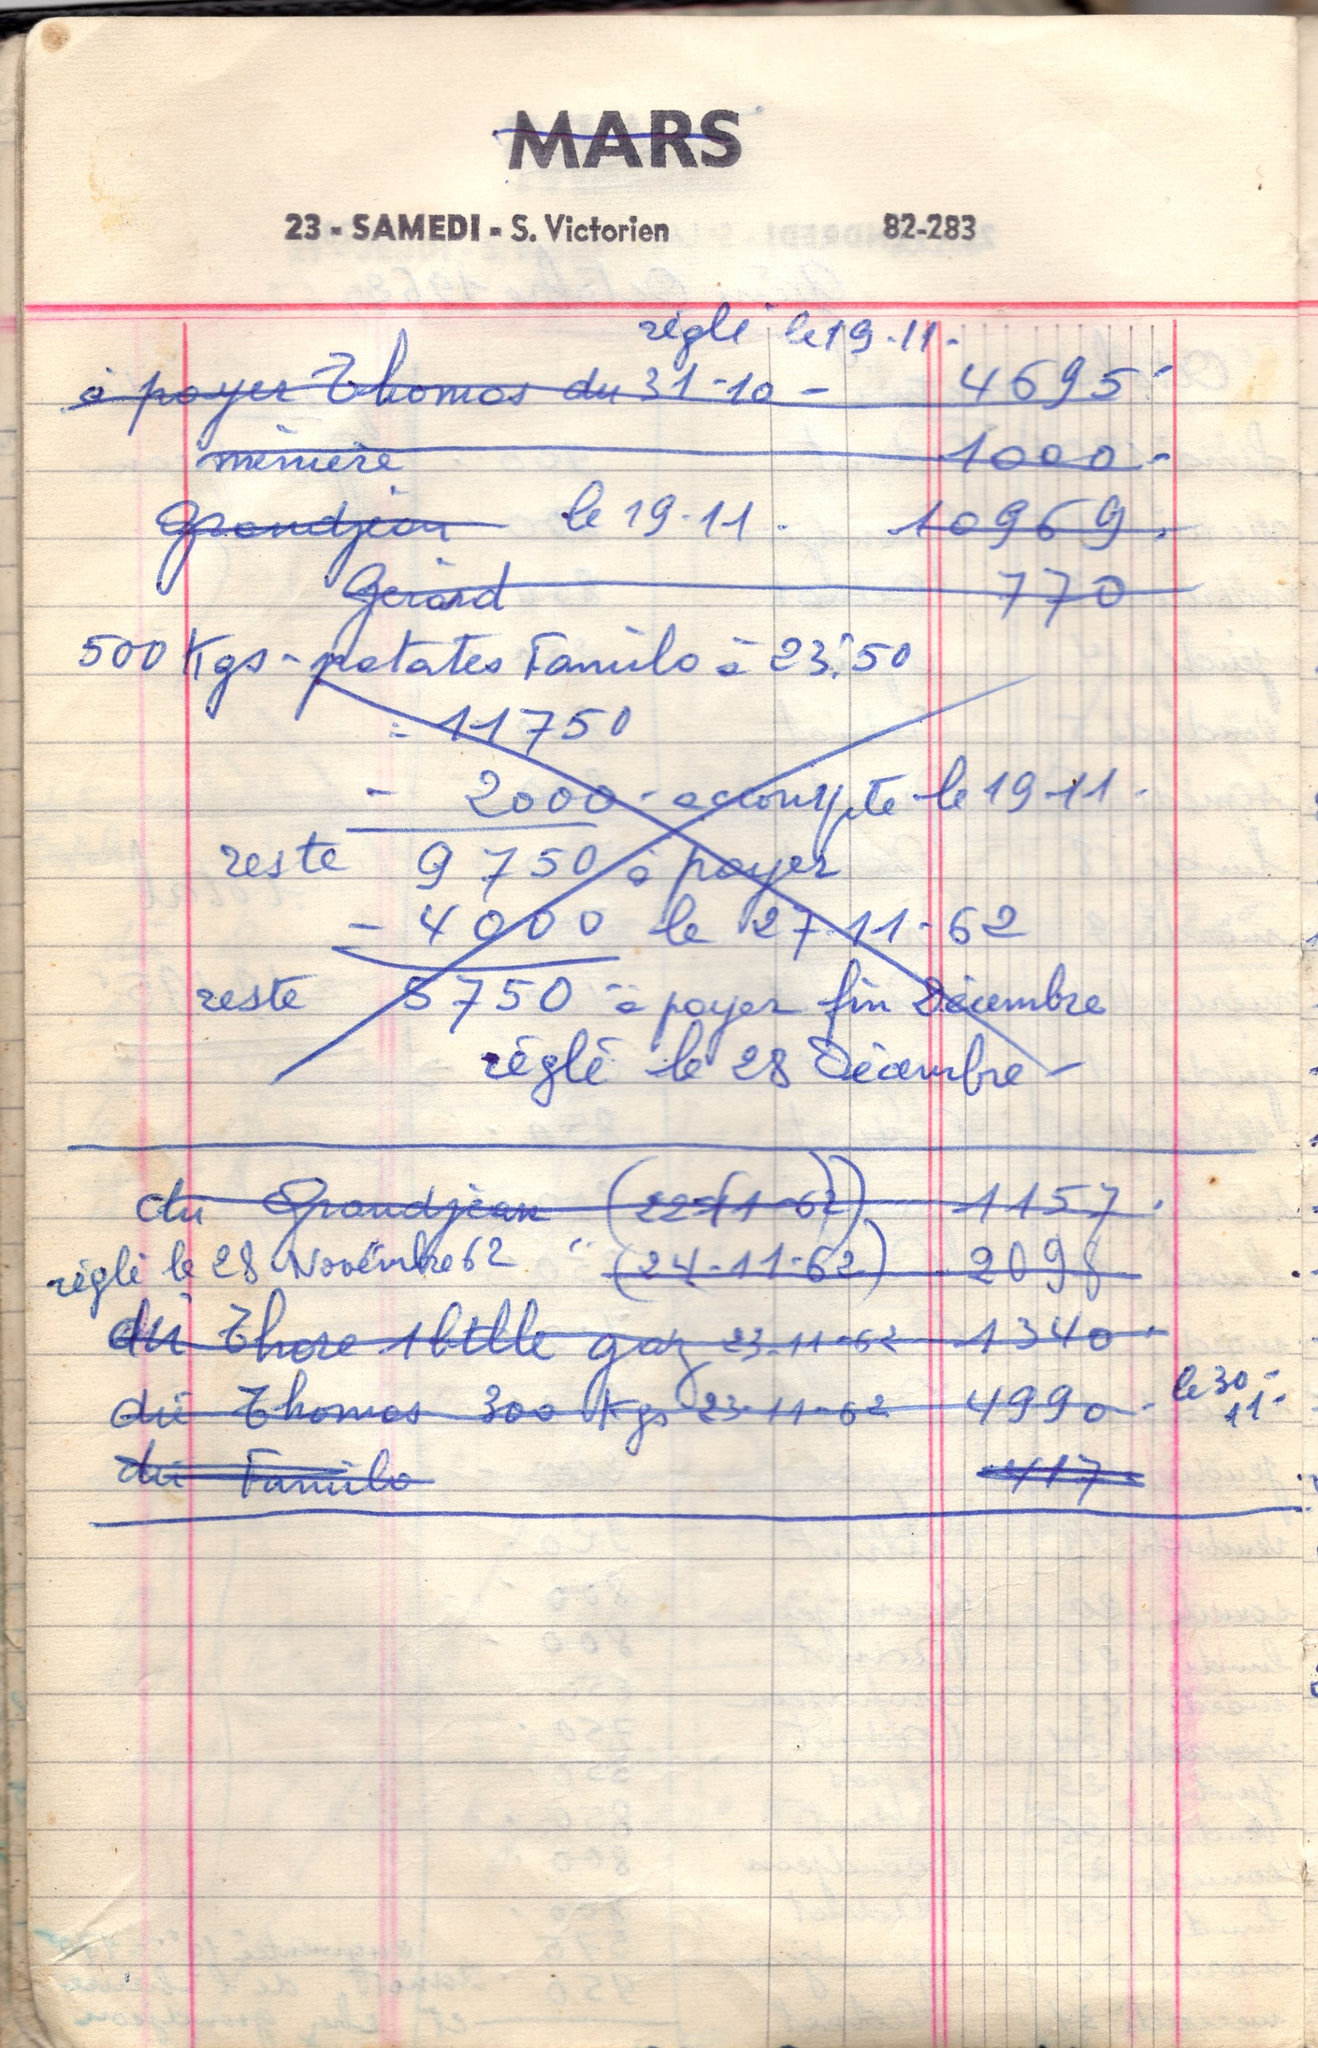 MARS
23 - SAMEDI - S. Victorien 82-283
réglé le 19-11-
à payer Thomas du 31-10 - 4695-
mémère 1000-
Grandjean le 19-11- 10969.
Gérard 770
500 Kgs - patates Familo à 23.50
= 11750
- 2000 - accompte le 19-11-
reste 9750 à payer
- 4000 le 27-11-62
reste 5750 à payer fin Décembre
réglé le 28 Décembre -
du Grandjean (22-11-62) 1157.
réglé le 28 Novembre 62 " (24-11-62) 2098
dû Thore 1 btlle gaz 23-11-62 1340-
dû Thomas 300 Kgs 23-11-62 4990- le 30-11-
dû Familo 417